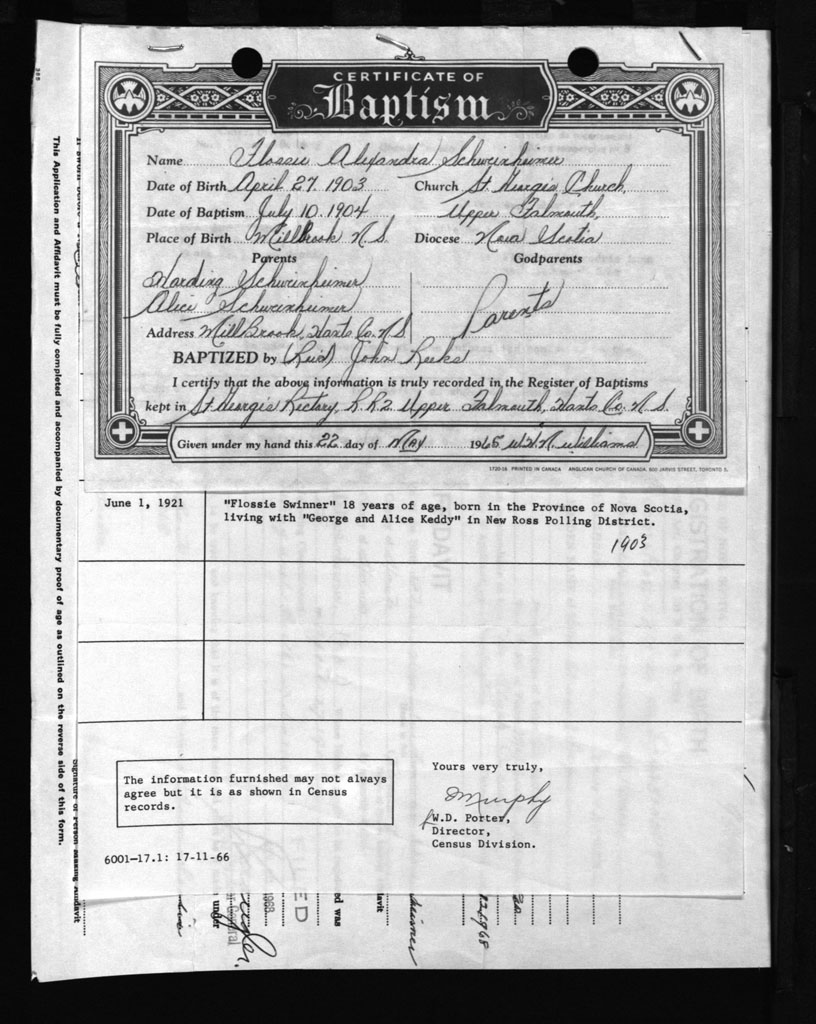 CERTIFICATE OF
Baptism
Name Flossie Alexandra Schweinheimer
Date of Birth April 27. 1903 Church St. George's Church,
Date of Baptism July 10. 1904 Upper Falmouth,
Place of Birth Millbrook N.S. Diocese Nova Scotia
Parents Godparents
Harding Schweinheimer
Alice Schweinheimer Parents
Address Mill Brook, Hants Co. N.S.
BAPTIZED by (Rev'd) John Reeks
I certify that the above information is truly recorded in the Register of Baptisms
kept in St George's Rectory, R.R.2 Upper Falmouth, Hants Co. N.S.
Given under my hand this 22 day of May 1965 W.N. Williams
1720-16 PRINTED IN CANADA ANGLICAN CHURCH OF CANADA, 600 JARVIS STREET, TORONTO 5.
June 1, 1921 "Flossie Swinner" 18 years of age, born in the Province of Nova Scotia,
living with "George and Alice Keddy" in New Ross Polling District.
1903
The information furnished may not always
agree but it is as shown in Census
records.
Yours very truly,
Murphy
W.D. Porter,
Director,
Census Division.
6001-17.1: 17-11-66
This Application and Affidavit must be fully completed and accompanied by documentary proof of age as outlined on the reverse side of this form.
Signature of Person Making Affidavit
FILED
1968
under
ed was
davit